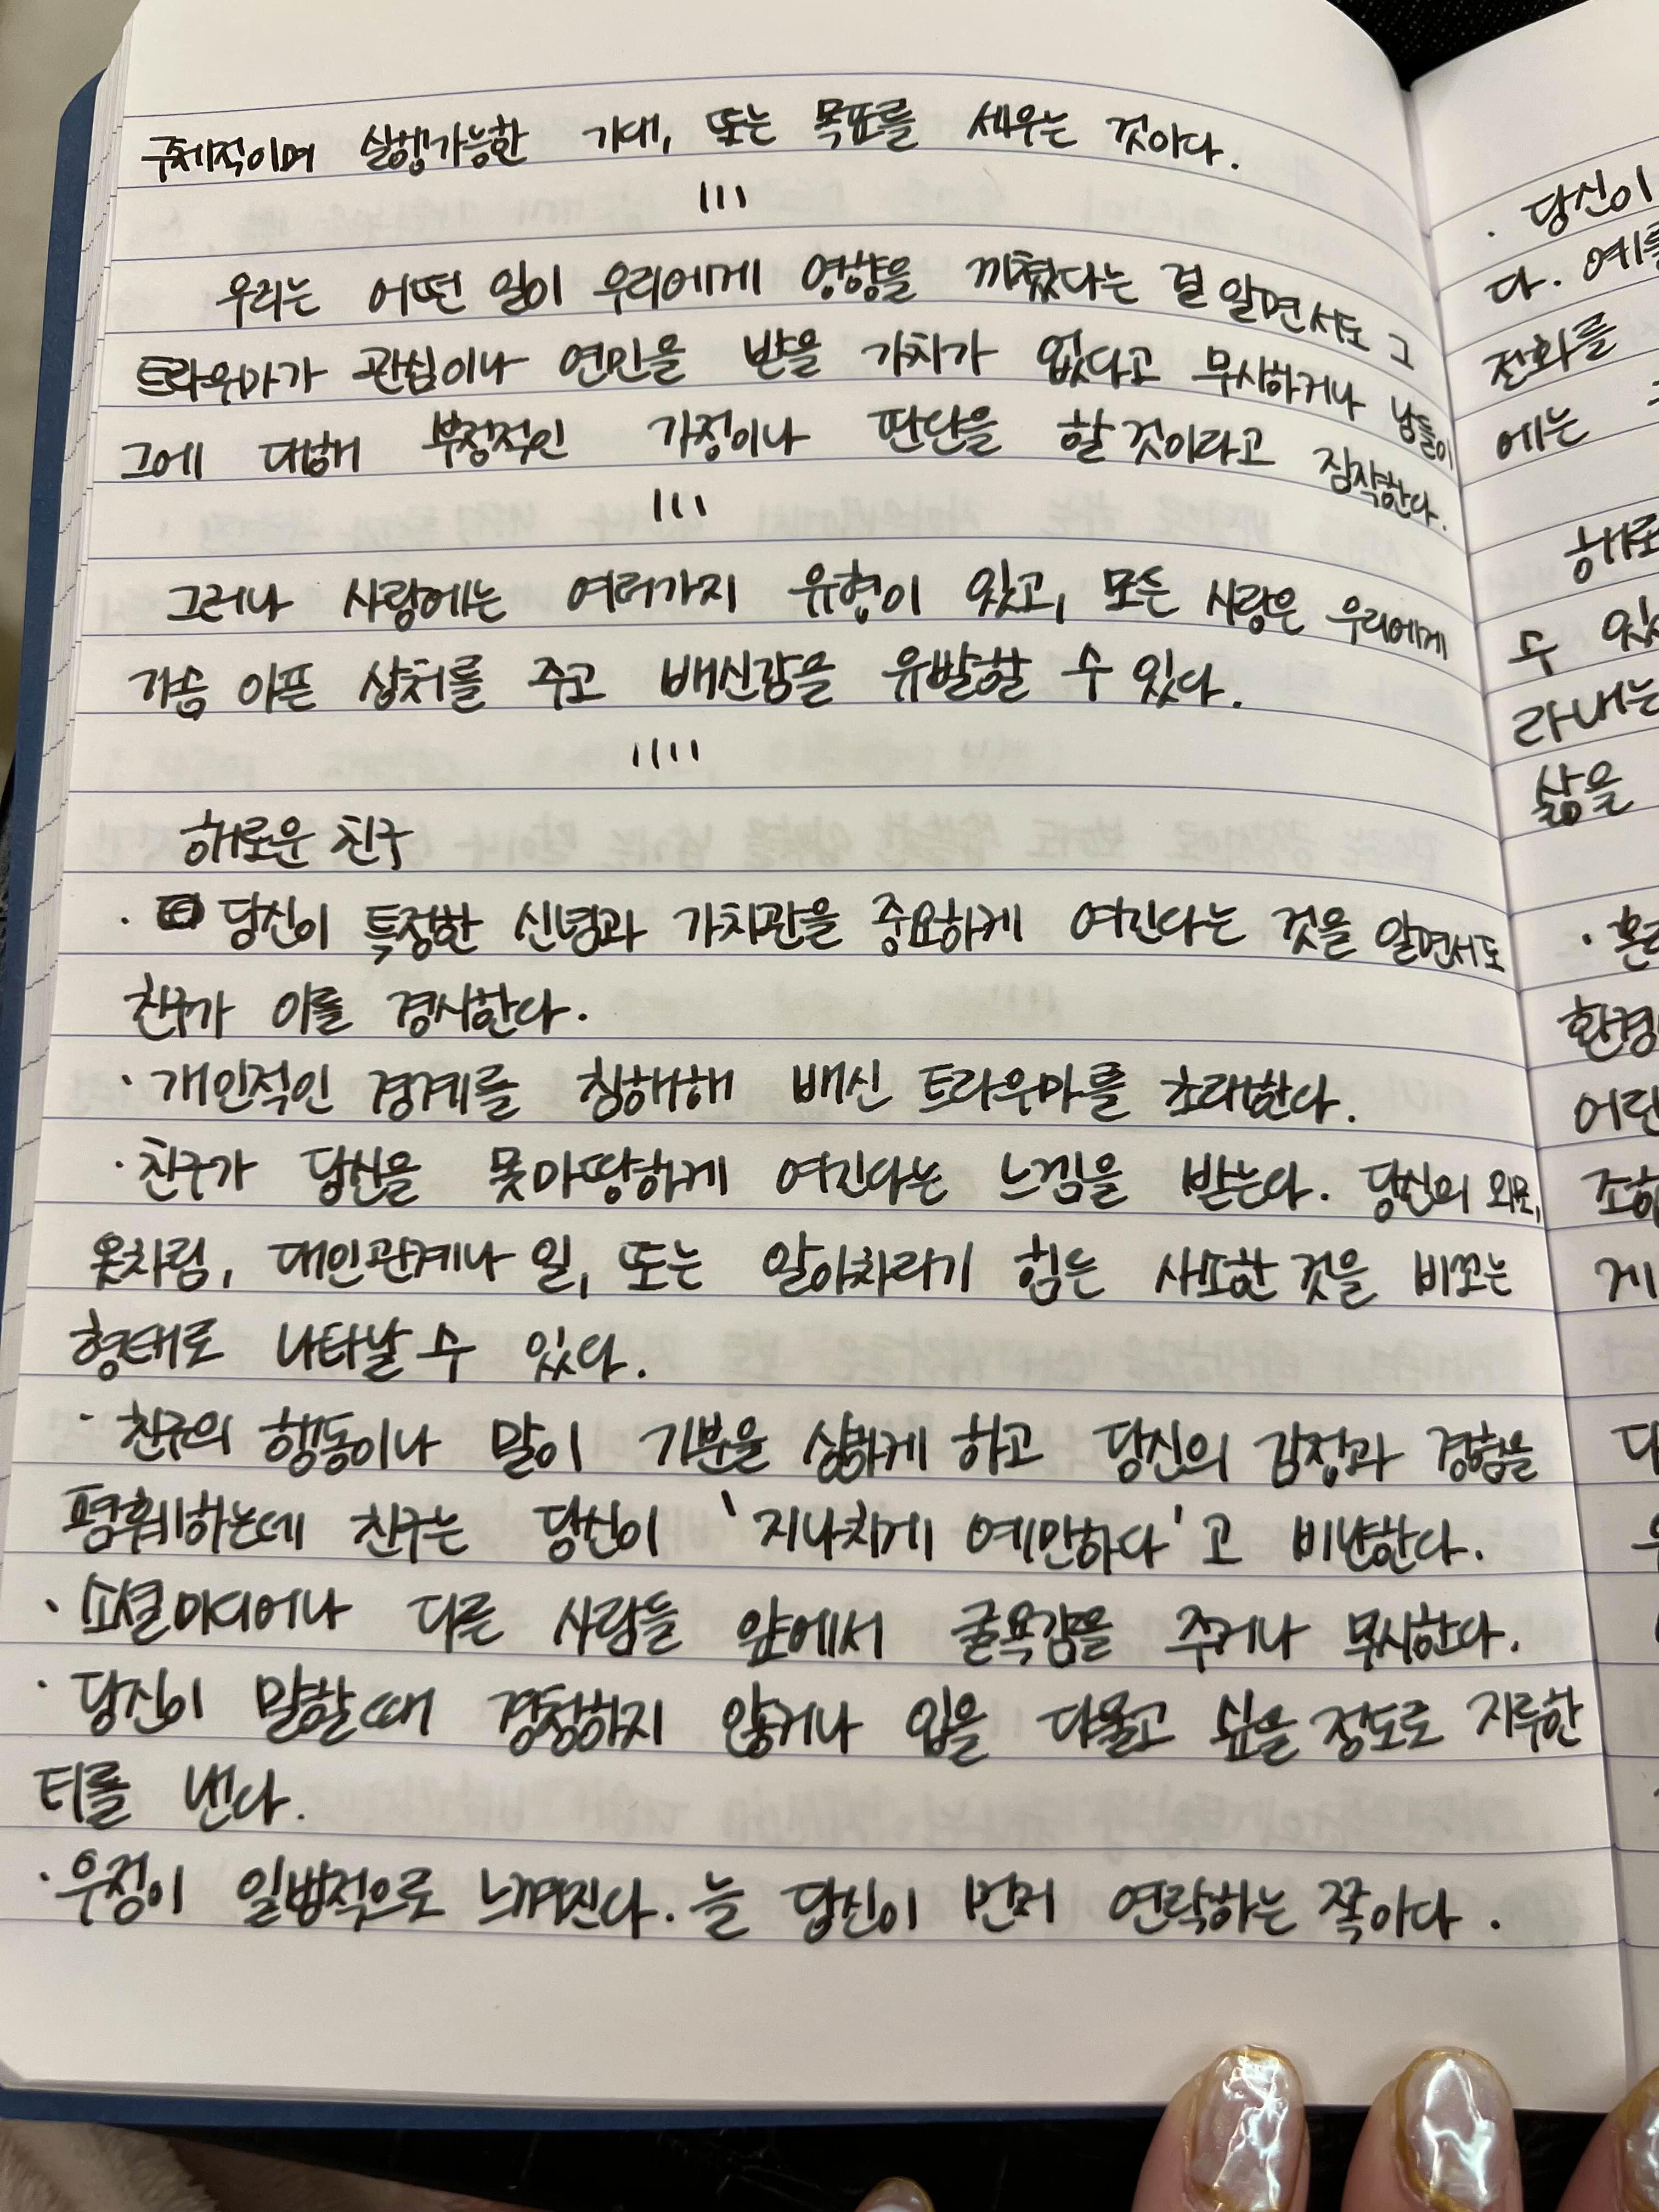 주체적이며 실행가능한 기대, 또는 목표를 세우는 것이다.
우리는 어떤 일이 우리에게 영향을 끼쳤다는 걸 알면서도 그
트라우마가 관심이나 연민을 받을 가치가 없다고 무시하거나 남들이
그에 대해 부정적인 가정이나 판단을 할 것이라고 짐작한다.
그러나 사랑에는 여러가지 유형이 있고, 모든 사랑은 우리에게
가슴 아픈 상처를 주고 배신감을 유발할 수 있다.
해로운 친구
· 당신이 특정한 신념과 가치관을 중요하게 여긴다는 것을 알면서도
친구가 이를 경시한다.
· 개인적인 경계를 침해해 배신 트라우마를 초래한다.
· 친구가 당신을 못마땅하게 여긴다는 느낌을 받는다. 당신의 외모,
옷차림, 대인관계나 일, 또는 알아차리기 힘든 사소한 것을 비꼬는
형태로 나타날 수 있다.
· 친구의 행동이나 말이 기분을 상하게 하고 당신의 감정과 경험을
폄훼하는데 친구는 당신이 '지나치게 예민하다'고 비난한다.
· 소셜미디어나 다른 사람들 앞에서 굴욕감을 주거나 무시한다.
· 당신이 말할 때 경청하지 않거나 입을 다물고 싶을 정도로 지루한
티를 낸다.
· 우정이 일방적으로 느껴진다. 늘 당신이 먼저 연락하는 쪽이다.
· 당신이
다. 예를
전화를
에는
수
라내는
삶을
환경